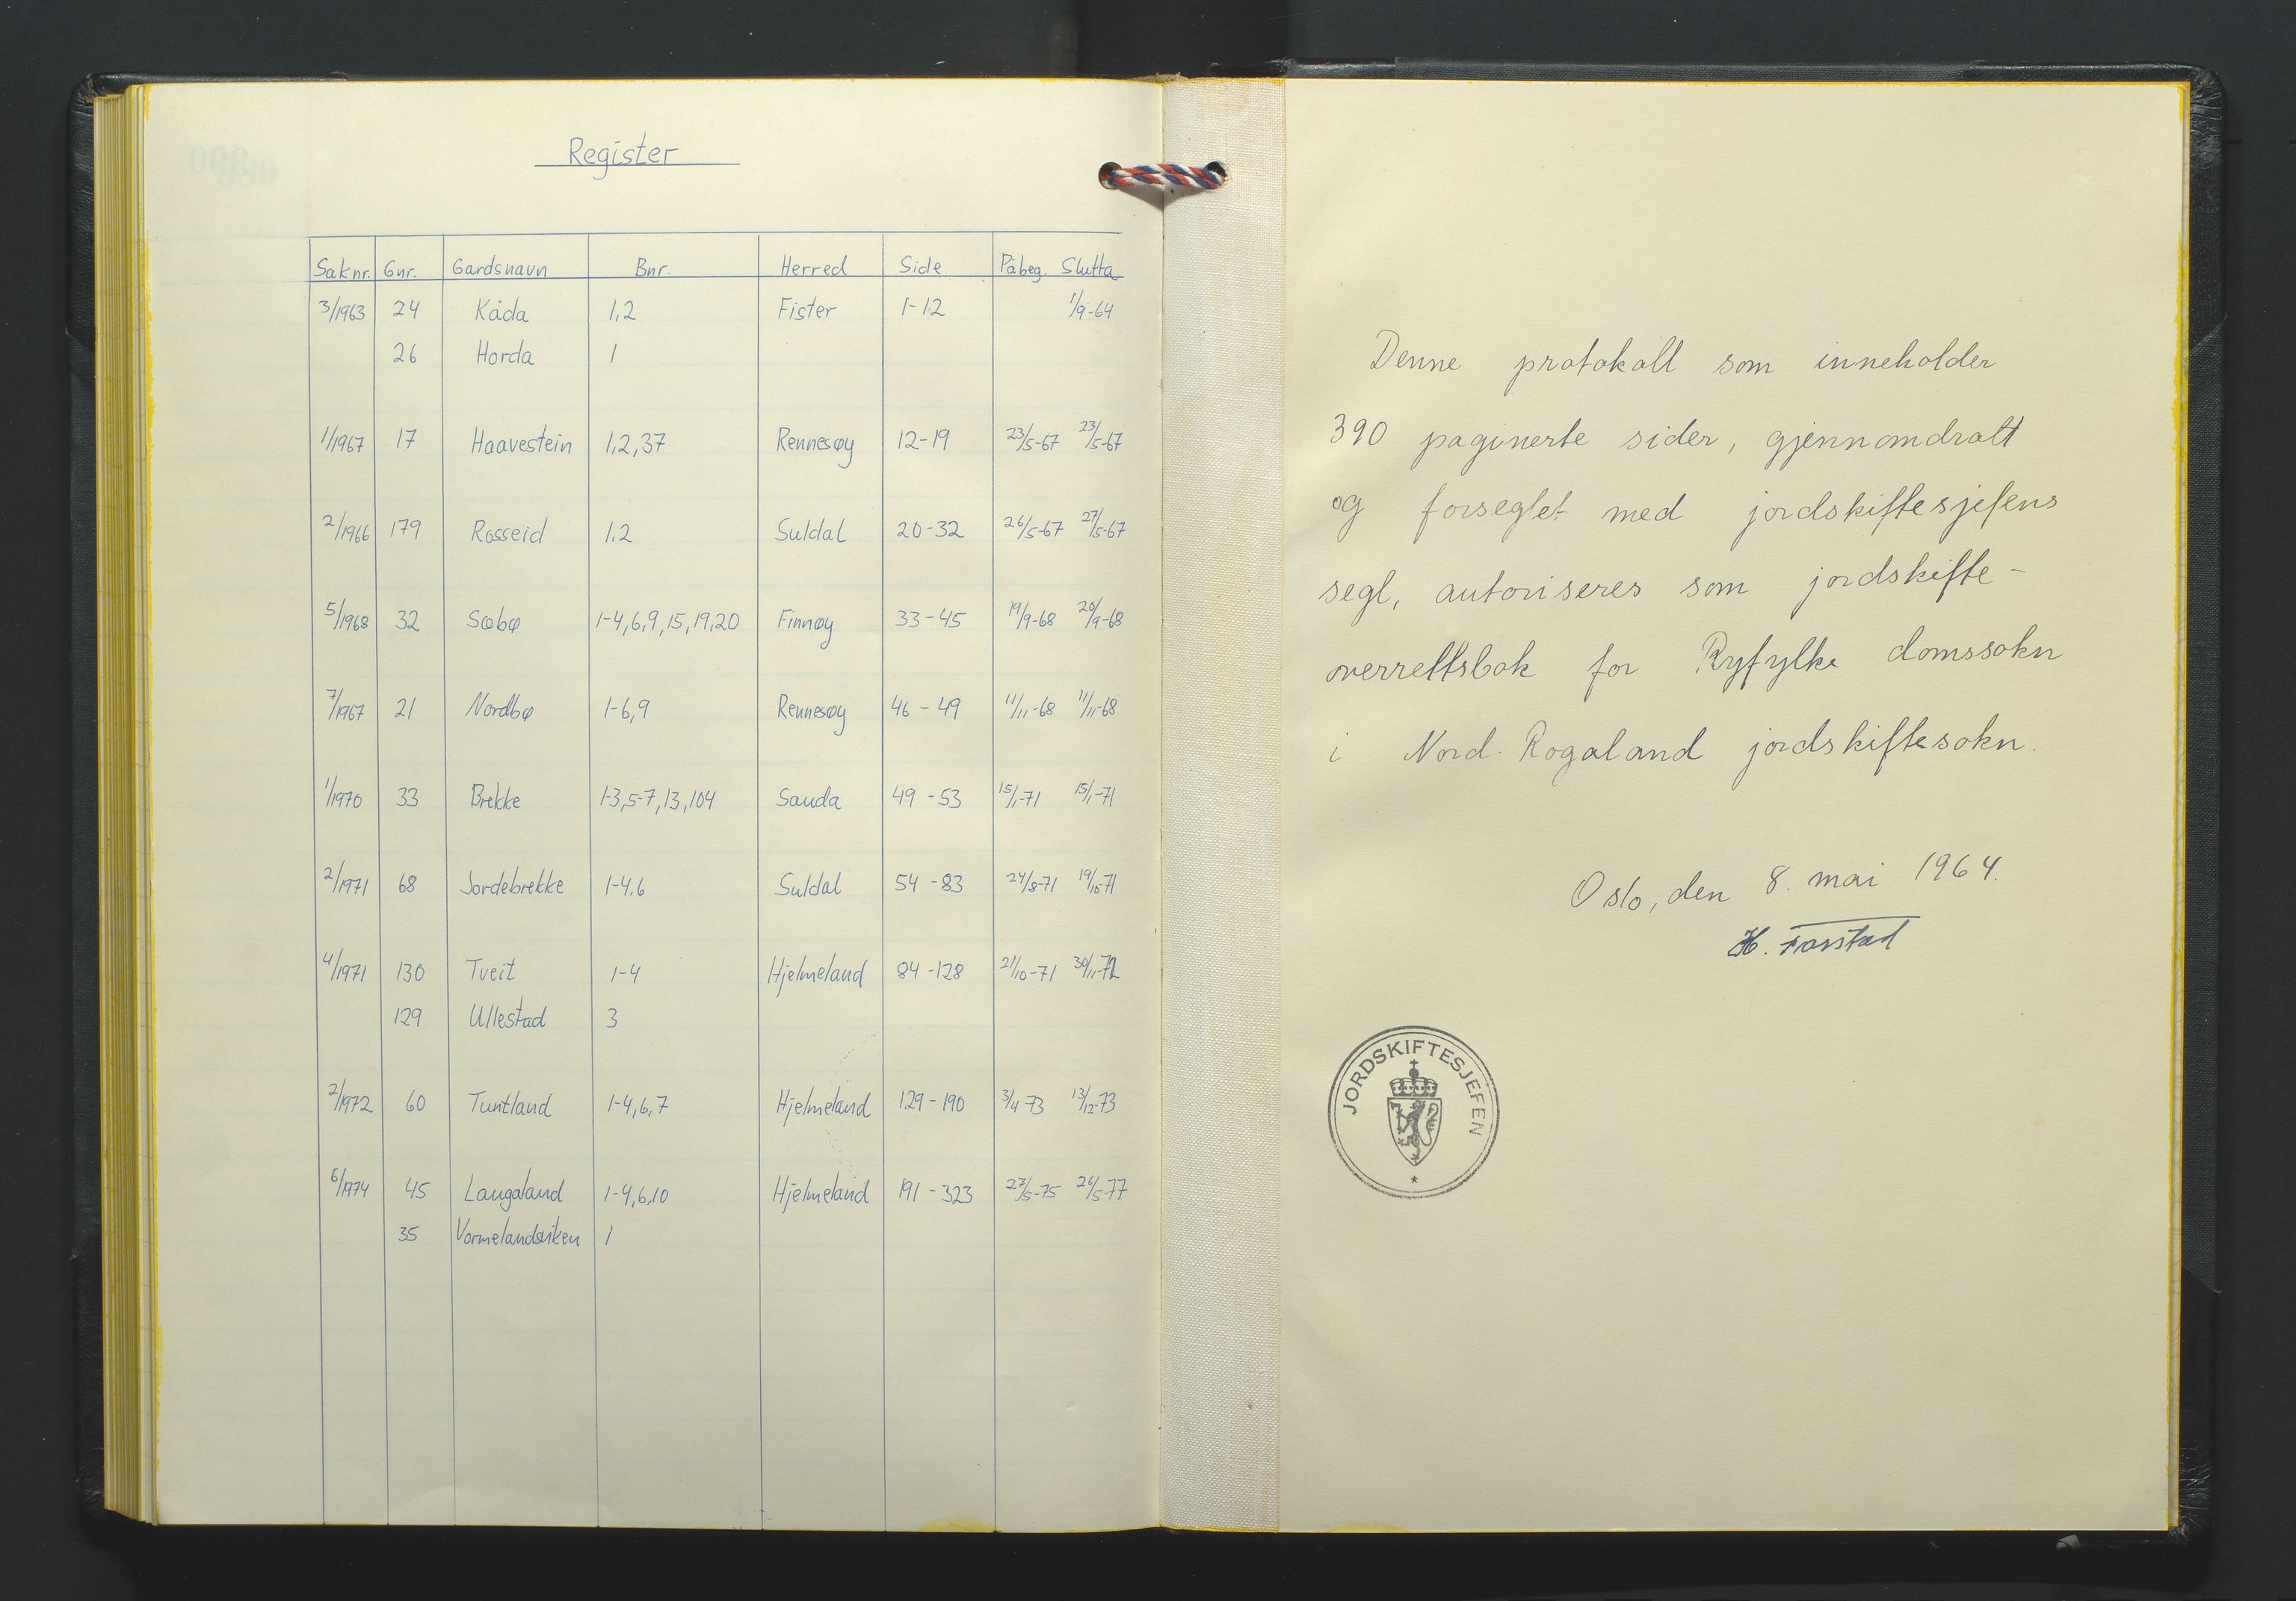 Register
Saknr. Gnr. Gardsnavn Bnr. Herred Side Påbeg. Slutta
3/1963 24 Kåda 1,2 Fister 1-12 1/9-64
26 Horda 1
1/1967 17 Haavestein 1,2,37 Rennesøy 12-19 23/5-67 23/5-67
2/1966 179 Rosseid 1,2 Suldal 20-32 26/5-67 27/5-67
5/1968 32 Sæbø 1-4,6,9,15,19,20 Finnøy 33-45 19/9-68 20/9-68
7/1967 21 Nordbø 1-6,9 Rennesøy 46-49 11/11-68 11/11-68
1/1970 33 Brekke 1-3,5-7,13,104 Sauda 49-53 15/1-71 15/1-71
2/1971 68 Jordebrekke 1-4,6 Suldal 54-83 24/8-71 19/10-71
4/1971 130 Tveit 1-4 Hjelmeland 84-128 21/10-71 30/11-72
129 Ullestad 3
2/1972 60 Tuntland 1-4,6,7 Hjelmeland 129-190 3/4-73 13/12-73
6/1974 45 Laugaland 1-4,6,10 Hjelmeland 191-323 27/5-75 26/5-77
35 Vormelandsviken 1
Denne protokoll som inneholder
390 paginerte sider, gjennomdratt
og forseglet med jordskiftesjefens
segl, autoriseres som jordskifte-
overrettsbok for Ryfylke domssokn
i Nord-Rogaland jordskiftesokn.
Oslo, den 8. mai 1964.
H. Farstad
JORDSKIFTESJEFEN